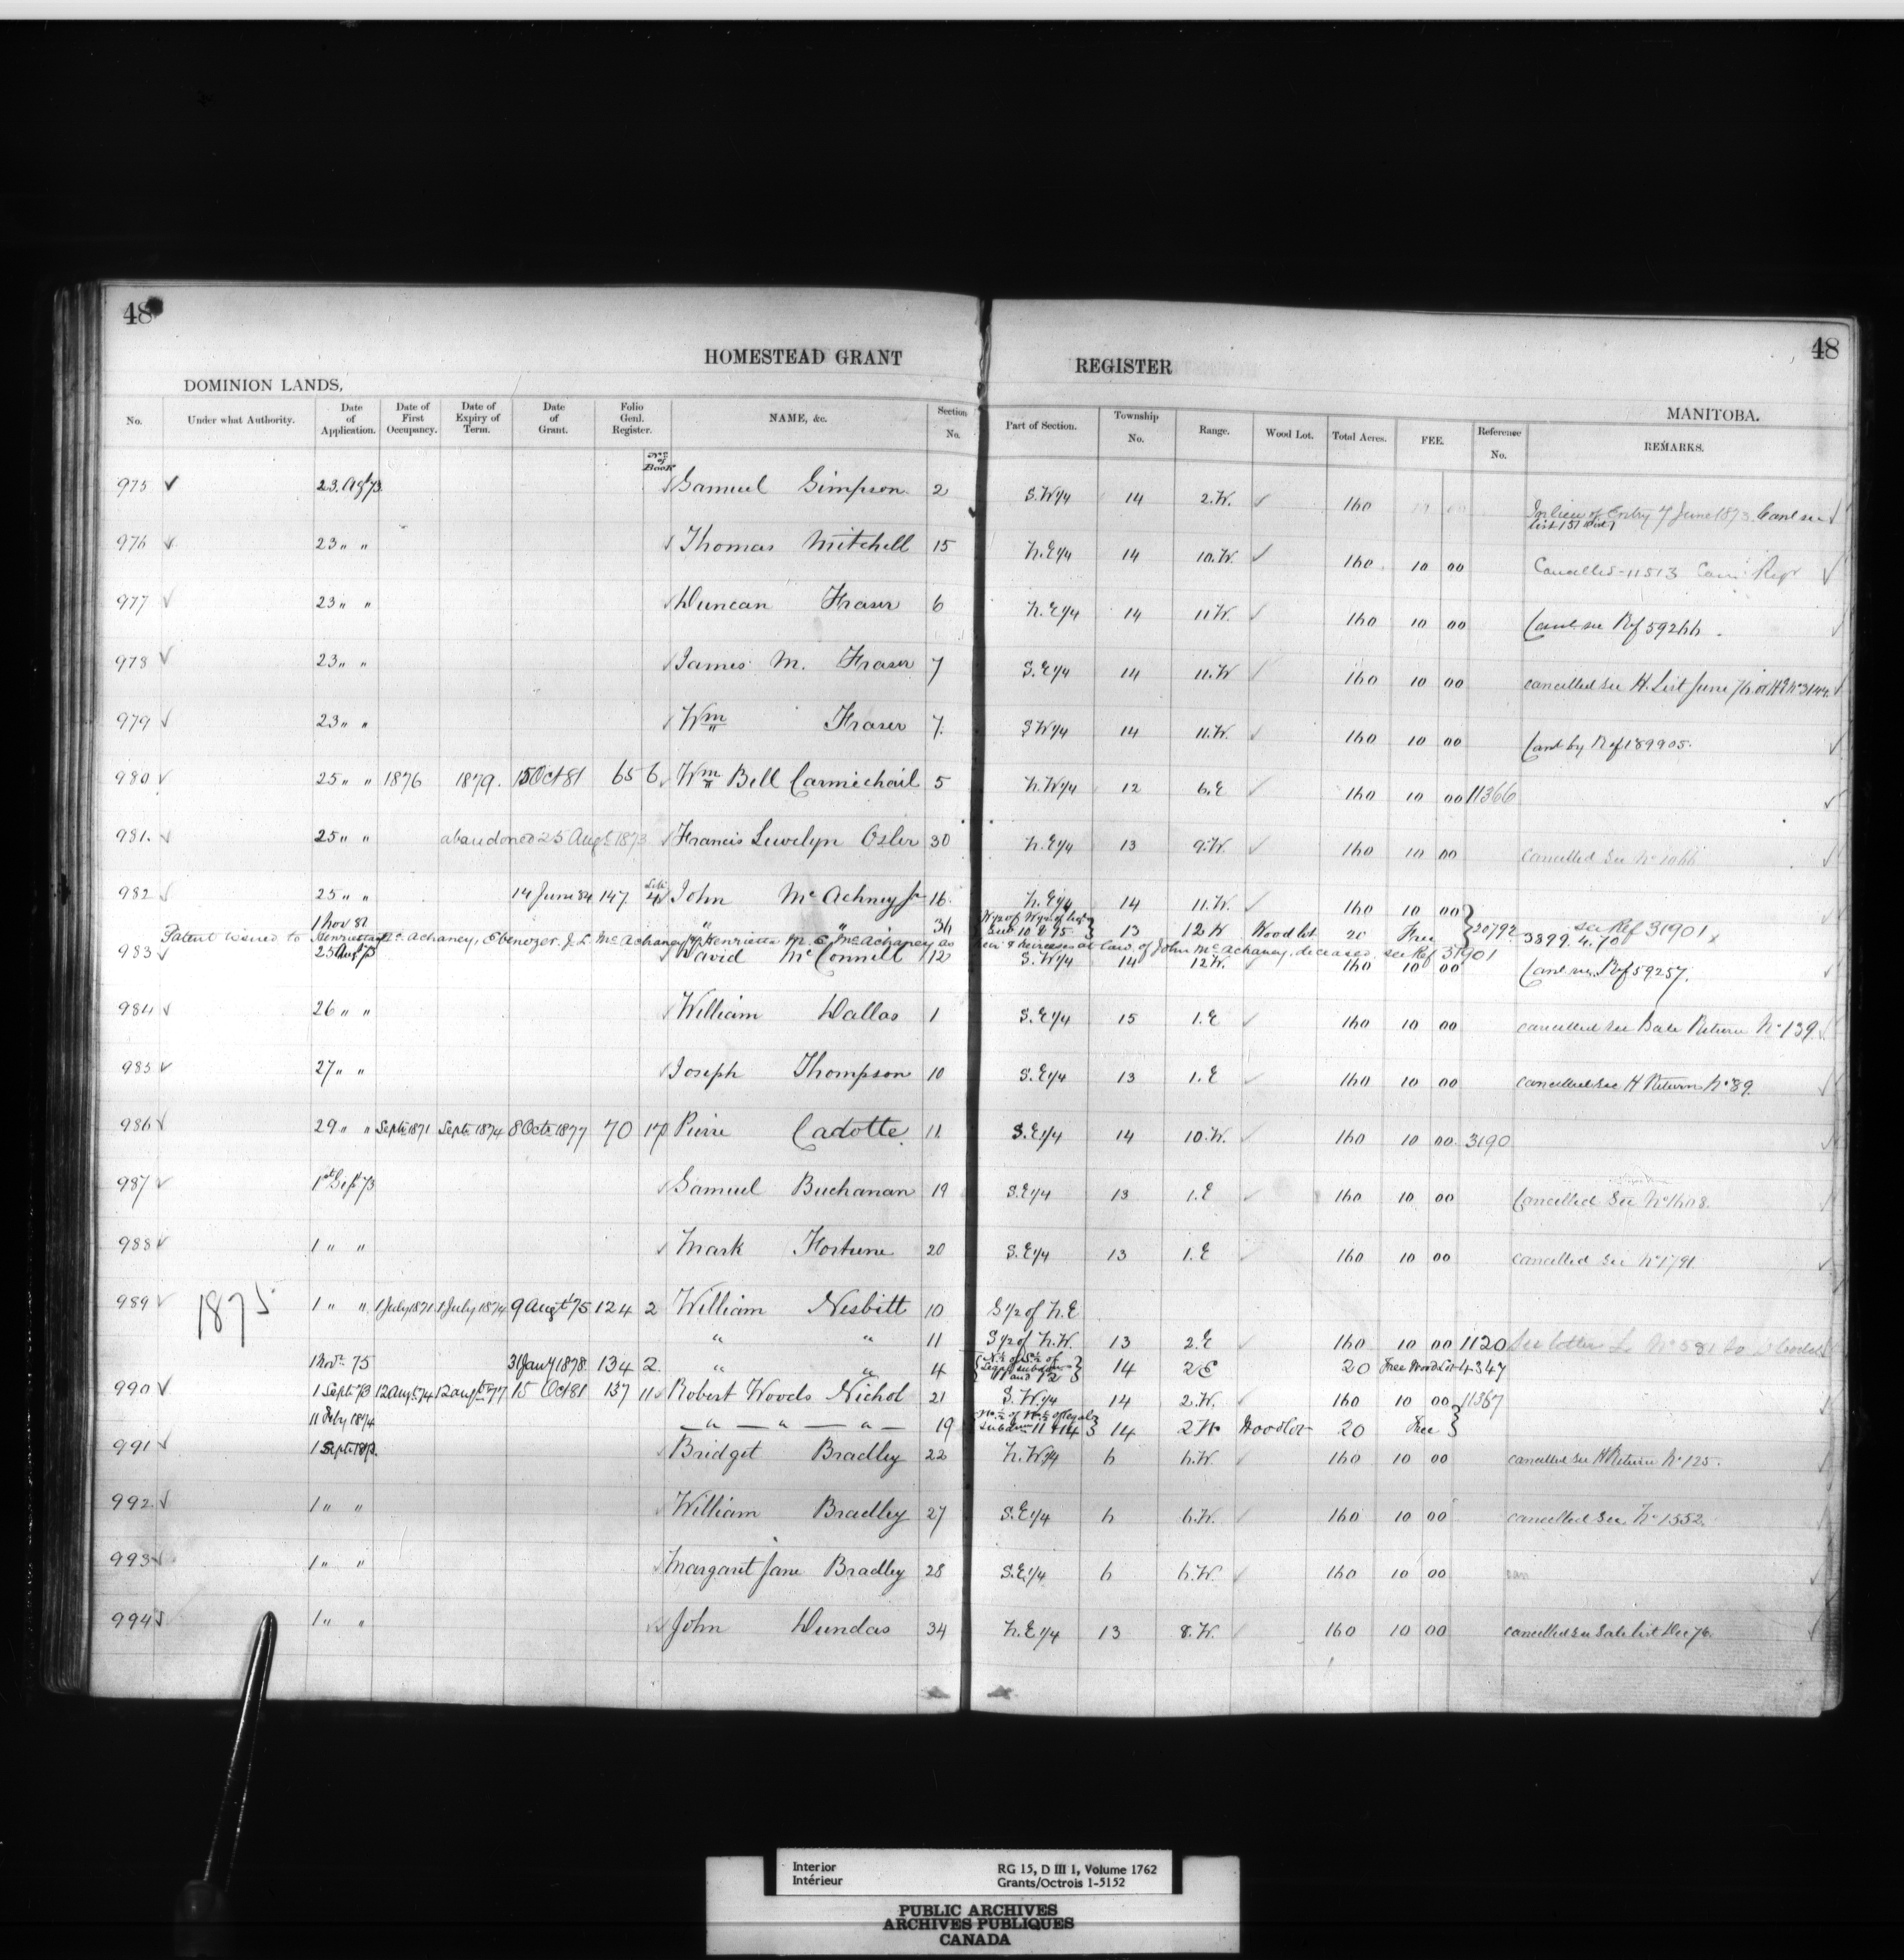 48
48
HOMESTEAD GRANT REGISTER
DOMINION LANDS, MANITOBA.
No. Under what Authority. Date of Application. Date of First Occupancy. Date of Expiry of Term. Date of Grant. Folio Genl. Register. NAME, &c. Section No. Part of Section. Township No. Range. Wood Lot. Total Acres. FEE. Reference No. REMARKS.
No. of Book
975 ✓ 23. Agt 73 Samuel Simpson 2 S.W 1/4 14 2.W. ✓ 160 In lieu of Entry 7 June 1873. Canl see
List 151
976 ✓ 23 " " Thomas Mitchell 15 N.E 1/4 14 10.W. ✓ 160 10 00 Cancelled-11513
977 ✓ 23 " " Duncan Fraser 6 N.E 1/4 14 11W. ✓ 160 10 00 Canl see Rf 59266
978 ✓ 23 " " James M. Fraser 7 S.E 1/4 14 11.W ✓ 160 10 00 cancelled see H. List June 76
979 ✓ 23 " " Wm Fraser 7. S W 1/4 14 11.W. ✓ 160 10 00 Canl by Ref 189905.
980 ✓ 25 " " 1876 1879. 15 Oct 81 65 6 Wm Bell Carmichail 5 N.W 1/4 12 6.E ✓ 160 10 00 11366
981. ✓ 25 " " abandoned 25 Augt 1873 Francis Lewelyn Osler 30 N.E 1/4 13 9.W. ✓ 160 10 00 Cancelled See No 1066
982 ✓ 25 " " 14 June 84 147 Lib 4 John McAchney Jr 16 N.E 1/4 14 11.W. ✓ 160 10 00
1 Nov 81 " " 36 13 12 W Wood lot 20 Free 20792 see Ref 31901
3899.4.70
Patent issued to Henrietta Mc. Achaney, Ebenezer J. L. McAchaney, Henrietta M. E. McAchaney as heir & heiresses at law of John McAchaney, deceased, see Ref 31901
983 ✓ 25 Aug 73 David McConnell 12 S.W 1/4 14 12W. 160 10 00 Canl see Ref 59257.
984 ✓ 26 " " William Dallas 1 S.E 1/4 15 1.E ✓ 160 10 00 cancelled see Sale Return No 139
985 ✓ 27 " " Joseph Thompson 10 S.E 1/4 13 1.E ✓ 160 10 00 cancelled see H Return No 89.
986 ✓ 29 " " Septr 1871 Septr 1874 8 Octr 1877 70 17 Pierre Cadotte 11 S.E 1/4 14 10.W. ✓ 160 10 00 3190
987 ✓ 1st Sept 73 Samuel Buchanan 19 S.E 1/4 13 1.E ✓ 160 10 00 Cancelled See No 1608.
988 ✓ 1 " " Mark Fortune 20 S.E 1/4 13 1.E ✓ 160 10 00 cancelled See No 1791
989 ✓ 1875 1 " " 1 July 1871 1 July 1874 9 Augt 75 124 2 William Nesbitt 10 S 1/2 of N.E
" " 11 S 1/2 of N.W. 13 2.E ✓ 160 10 00 1120
1 Novr 75 31 Jany 1878 134 2 " " 4 N 1/2 of S 1/2 of Legal subdivn 11 and 12 14 2 E 20 Free Wood Lot 4347
990 ✓ 1 Sept 73 12 Augt 74 12 augt 77 15 Oct 81 137 11 Robert Woods Nichol 21 S.W 1/4 14 2.W. ✓ 160 10 00 11367
11 Feby 1874 " " " 19 14 2 W Woodlot 20 Free
991 ✓ 1 Sept 1873. Bridget Bradley 22 N.W 1/4 6 6.W. ✓ 160 10 00 cancelled see H Return No 125.
992 ✓ 1 " " William Bradley 27 S.E 1/4 6 6.W. ✓ 160 10 00 cancelled See No 1552.
993 ✓ 1 " " Margaret Jane Bradley 28 S.E 1/4 6 6.W. ✓ 160 10 00
994 ✓ 1 " " John Dundas 34 N.E 1/4 13 8.W. 160 10 00 cancelled see Sale List Dec 76.
Interior RG 15, D III 1, Volume 1762
Intérieur Grants/Octrois 1-5152
PUBLIC ARCHIVES
ARCHIVES PUBLIQUES
CANADA